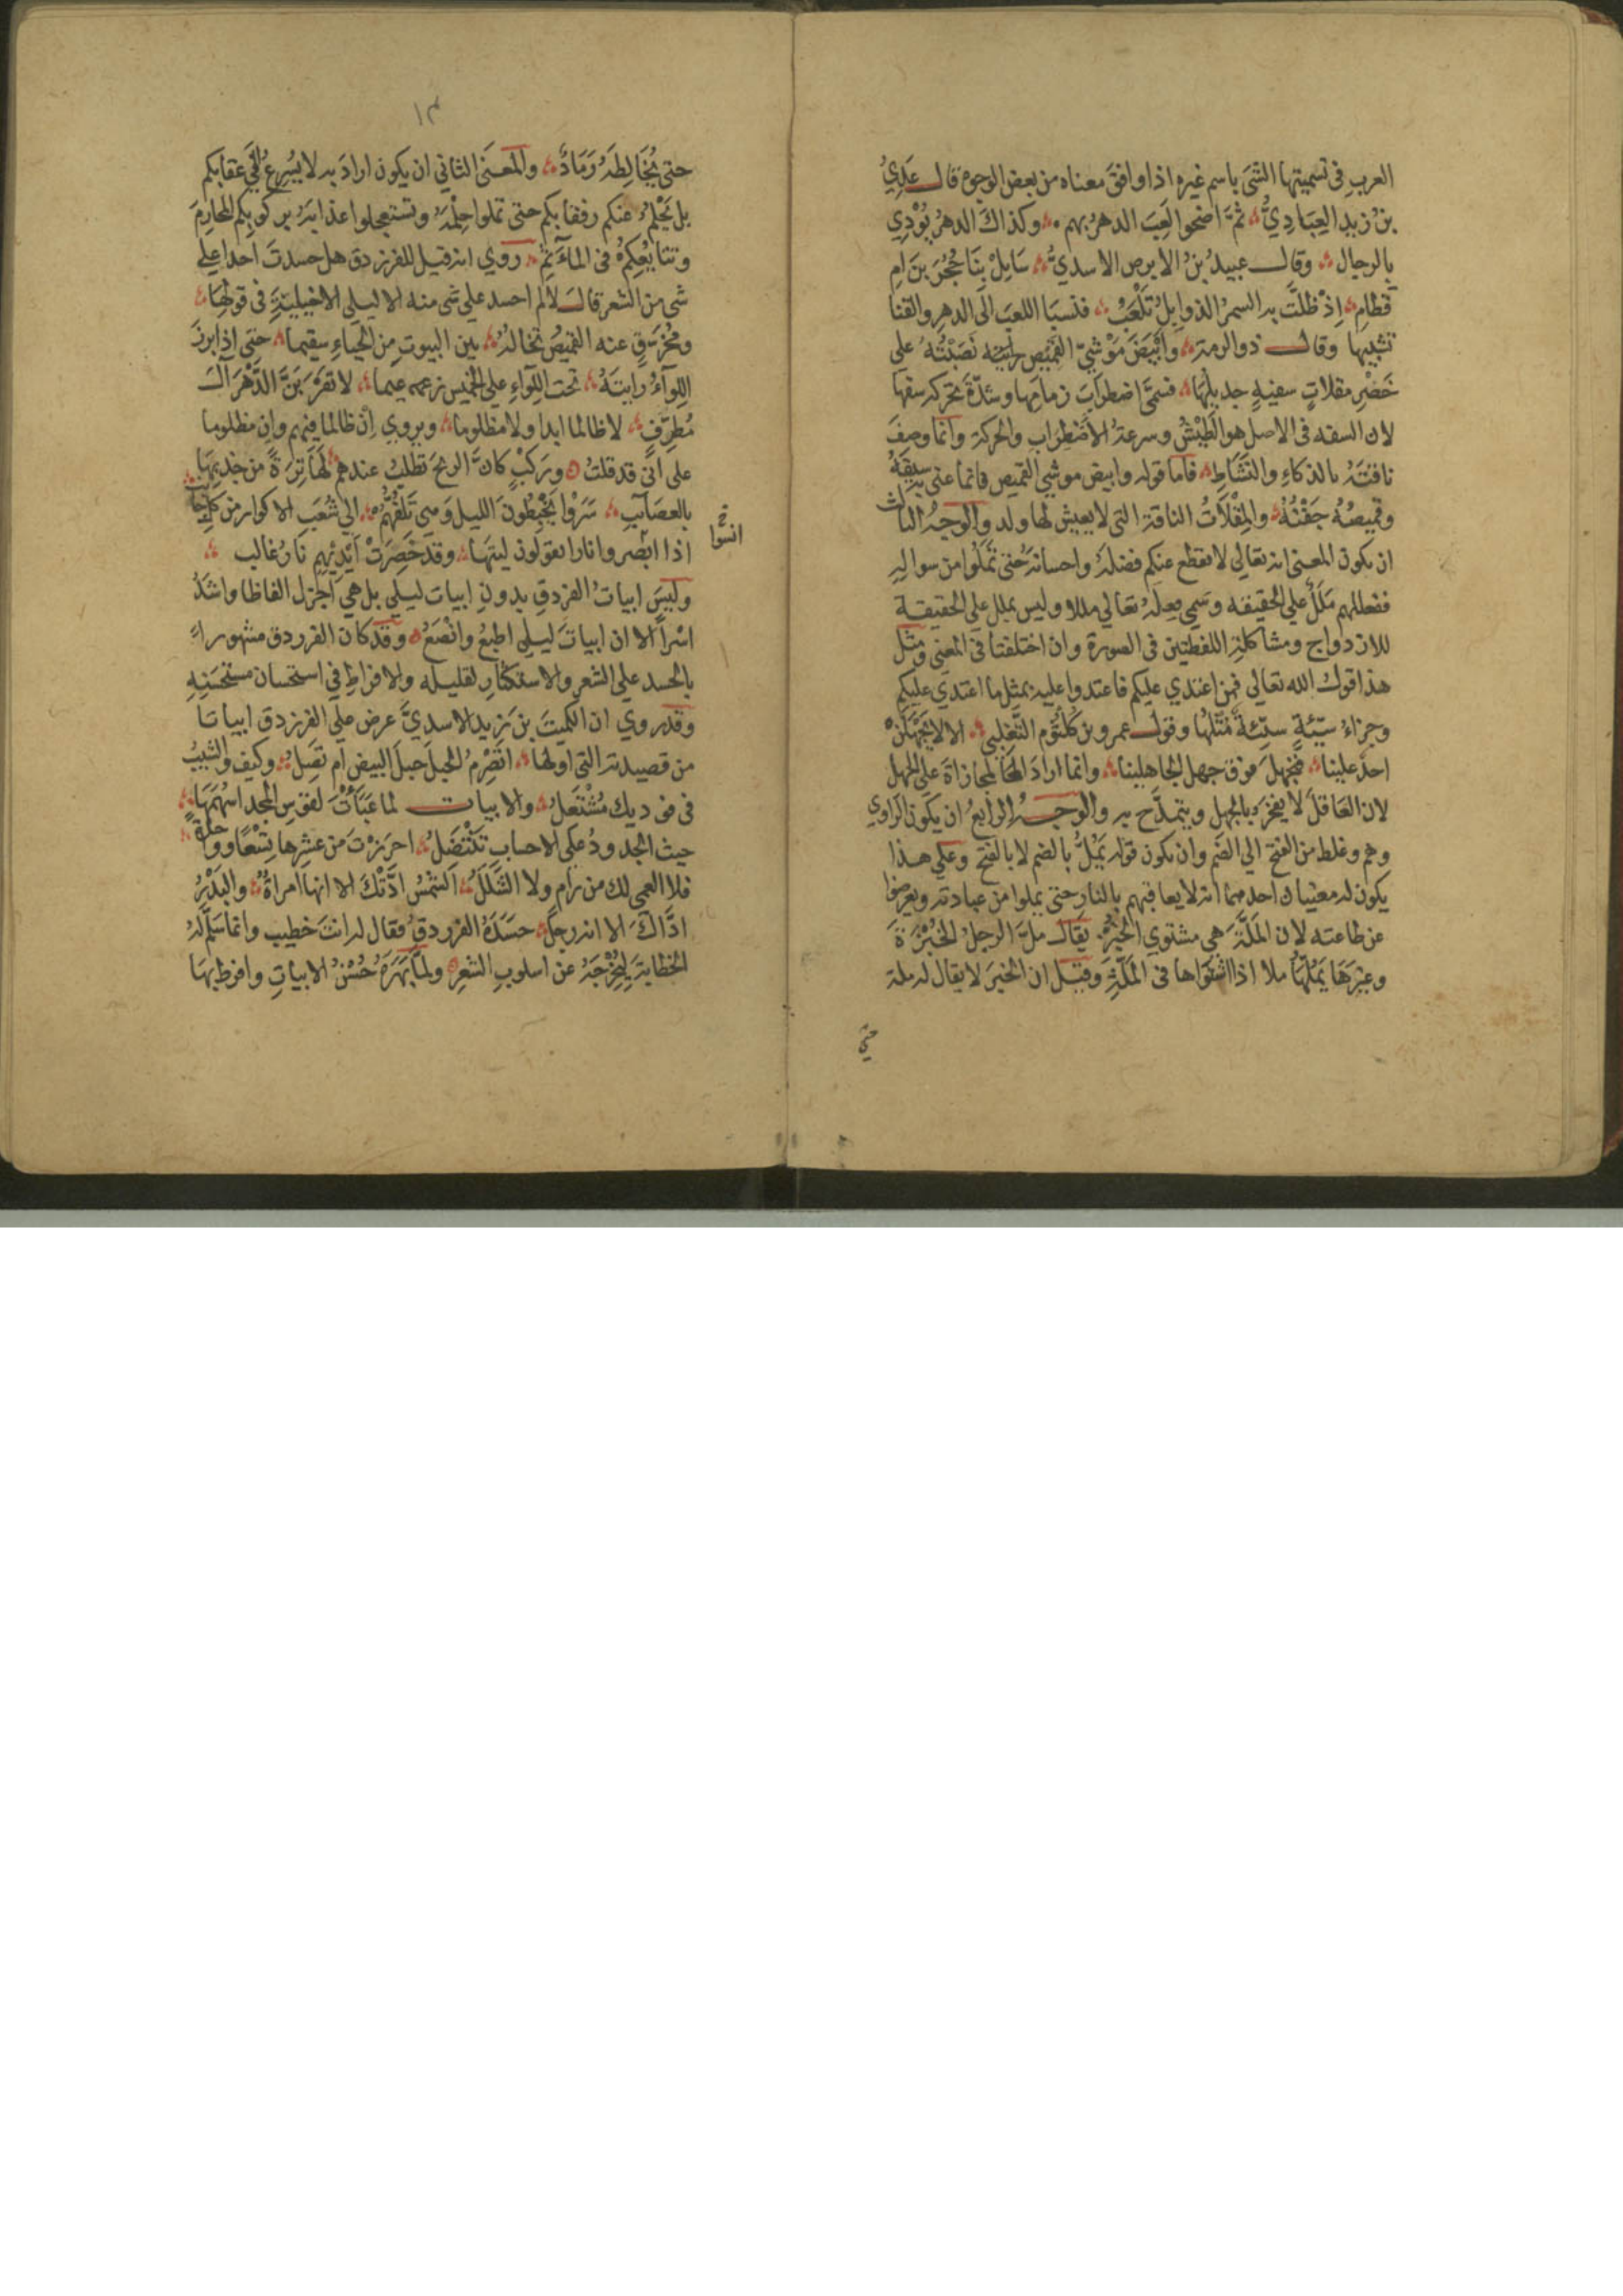 العرب في تسميتها الشى باسم غيره اذا وافق معناه من بعض الوجوه قال عَدِيُّ
بنُ زيدِ العِبَادِيُّ ثمَّ اضحوا لَعِبَ الدهرُ بهم وكذاكَ الدهرُ يُوْدِي
بالرجالِ وقال عبيدُ بنُ الابرص الاسديُّ سَايِلْ بِنَا حُجْرَ بنَ امِ
قطامِ اِذْ ظلَّت به السمرُ الذوابلُ تَلْعَبُ فنسبا اللعبَ الى الدهر والقنا
تشبيها وقال ذو الرمة وَاَبْيَضَ مَوْشِيِّ القميصِ نَصَبْتُهُ على
خَصْرِ مقلاتٍ سفيهٍ جديلُهَا فسمَّى اضطرابَ زمامِها وشدَّةَ تحركه سفها
لان السفه في الاصل هو الطَيْشُ وسرعةُ الاضْطِرَابِ والحركة وانما وصفَ
ناقتَهُ بالذكاءِ والنَّشَاطِ فاما قوله وابيض موشي القميص فانما عنى به سيفَهُ
وقميصُهُ جَفْنُهُ والمِقْلَاتُ الناقة التى لا يعيش لها ولد والوجهُ الثالث
ان يكون المعنى انه تعالي لا يقطع عنكم فضلهُ واحسانَهُ حتى تَمَلُّوا من سواله
ففعلهم مَلَلٌ علي الحقيقه وسَمي فِعلَهُ تعالي مللا وليس بملل علي الحقيقة
للازدواج ومشاكلة اللفظتين في الصورة وان اختلفتا في المعني ومثل
هذا قولُ الله تعالي فمن اعتدي عليكم فاعتدوا عليه بمثل ما اعتدي عليكم
وجزاءُ سيّئةٍ سيّئةٌ مثلُها وقولُ عمرو بن كُلْثُوم التَّغلبي الا لا يَجْهَلَنْ
احدٌ علينا فنجهلَ فوق جهل الجاهلينا وانما ارادَ المجازاةَ على الجهل
لان العَاقلَ لا يفخرُ بالجهلِ ويتمدَّح به والوجهُ الرابعُ ان يكون الراوي
وهم وغلط من الفتح الي الضم وان يكون قوله يَمُلُّ بالضم لا بالفتح وعلي هذا
يكون له معنيان احدهما انه لا يعاقبهم بالنار حتى يملوا من عبادته ويعرضوا
عن طاعته لان المَلَّةَ هي مشتوي الخُبْزَةِ يقال ملَّ الرجلُ الخُبْزَةَ
وغيرَهَا يَمُلُّهَا ملا اذا اشتَوَاها فى المَلَّةِ وقيل ان الخبزَ لا يقال له ملة
حتى
١٣
حتى يُخَالِطَهُ رَمَادٌ والمعنَى الثاني ان يكون ارادَ به لا يُسْرِعُ في عقابكم
بل يَحْلُمُ عنكم رفقا بكم حتى تملوا حِلْمَهُ وتستعجلوا عذابَهُ بركوبكم المحارِمَ
وتتابُعِكُمْ في المآثمِ روي انه قيل للفرزدق هل حسدتَ احدا علي
شى من الشعر قالَ لا لم احسد على شى منه الا ليلي الاخيليةَ في قولها
ومُخرَّقٍ عنه القميصُ تخالُهُ بين البيوتِ من الحياءِ سقيما حتى اذا برزَ
اللِّوَآءُ رايتَهُ تحت اللِّواءِ على الخميس زعيما لا تَقْرَبَنَّ الدَّهْرَ الَ
مُطَرِّفٍ لا ظالما ابدا ولا مظلوما ويروي اِنْ ظالما فيهم وان مظلوما
على انّي قد قلتُ ورَكْبٍ كانَّ الريحَ تطلُبُ عندهم لَهَا تِرَةً من جذبِهَا
بالعصايبِ سَرَوْا يَخْبِطُونَ الليلَ وَهْيَ تَلُفُّهُمْ الي شُعَبِ الاكوار من كل جانب
اذا ابْصروا نارا يقولون ليتَهَا وقد خَصِرَتْ اَيْدِيْهِم نَارُ غالب
انسوا خ
وليسَ ابياتُ الفرزدقِ بدونِ ابيات ليلي بل هي اَجزل الفاظا واشَدُّ
اسْراً الا ان ابياتَ ليلى اطبعُ وانْصَعُ وقد كان الفرزدق مشهوراً
بالحسد على الشعر والاستكثارِ لقليله والافراطِ في استحسان مستحسَنِهِ
وقد روي ان الكميتَ بن زيد الاسديَّ عرض علي الفرزدق ابياتا
من قصيدته التي اولها اتَصْرِمُ الحبلَ حبلَ البيضِ ام تصلُ وكيف والشيبُ
في فوديك مُشْتَعِلُ والابيات لما عَبَأْتَ لقوس المجد اسهُمَهَا
حيث الجدودُ على الاحسابِ تَنْتَضِلُ احرزتَ من عشرها تِسْعًا وواحدةً
فلا العمي لك من رامٍ ولا الشَّلَلُ الشمسُ ادَّتْكَ الا انها امراةٌ والبَدْرُ
ادَّاكَ الا انه رجلٌ حَسَدَهُ الفرزدقُ فقال له انتَ خطيب وانما سَلَّمَ لهُ
الخطابةَ لِيُخْرِجَهُ عن اسلوبِ الشعرِ ولمّا بَهَرَهُ حُسْنُ الابياتِ وافرط بها